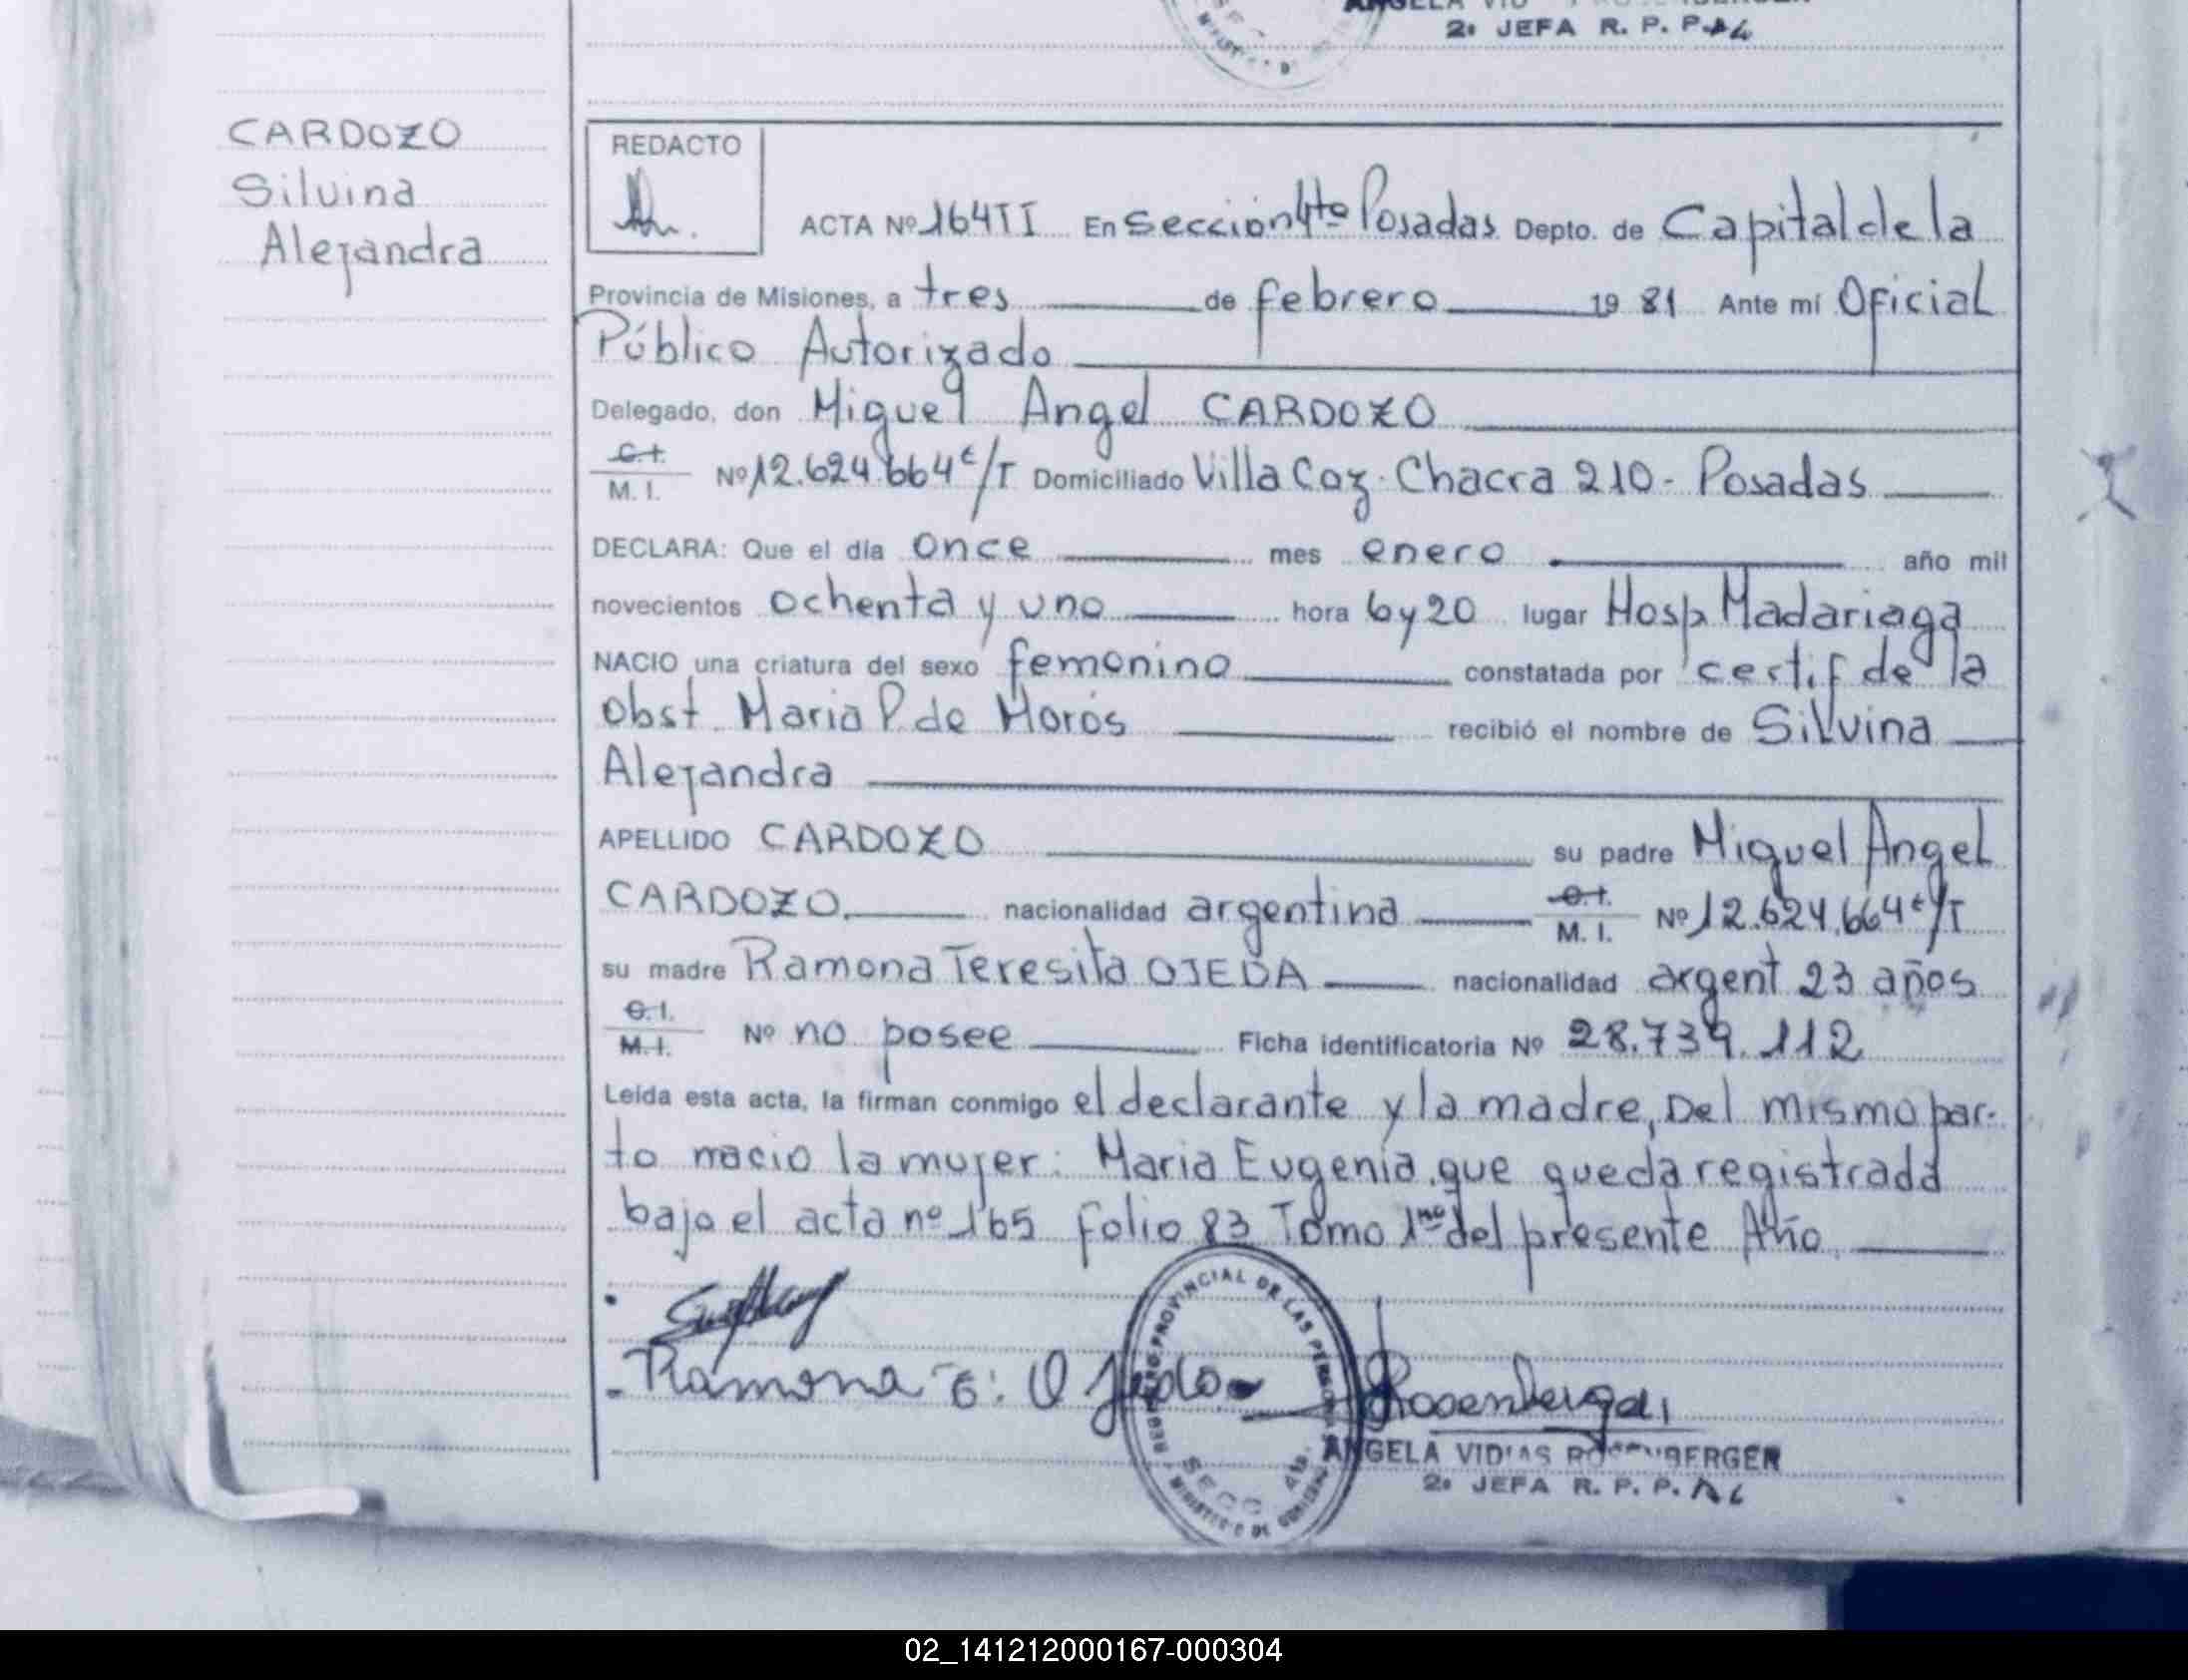 2º JEFA R. P. P.
CARDOZO
Silvina
Alejandra
REDACTO
ACTA Nº 164 TI En Sección 4ta Posadas Depto. de Capital de la
Provincia de Misiones, a tres de febrero 19 81 Ante mí Oficial
Público Autorizado
Delegado, don Miguel Angel CARDOZO
C.I.
M. I. Nº 12.624.664 t/T Domiciliado Villa Coz. Chacra 210 - Posadas
DECLARA: Que el día once mes enero año mil
novecientos ochenta y uno hora 6 y 20 lugar Hosp. Madariaga
NACIO una criatura del sexo femenino constatada por certif de la
obst. Maria P. de Morós recibió el nombre de Silvina
Alejandra
APELLIDO CARDOZO su padre Miguel Angel
CARDOZO. nacionalidad argentina C.I.
M. I. Nº 12.624.664 t/T
su madre Ramona Teresita OJEDA nacionalidad argent 23 años
C.I.
M.I. Nº no posee Ficha identificatoria Nº 28.739.112
Leida esta acta, la firman conmigo el declarante y la madre, Del mismo par-
to nacio la mujer: Maria Eugenia, que queda registrada
bajo el acta nº 165 folio 83 Tomo 1mo del presente Año.
Ramona T. Ojeda
REGISTRO PROVINCIAL DE LAS PERSONAS
SECC. 4ta.
MINISTERIO DE GOBIERNO
Rosenberger
ANGELA VIDIAS ROSENBERGER
2º JEFA R. P. P.
02_141212000167-000304